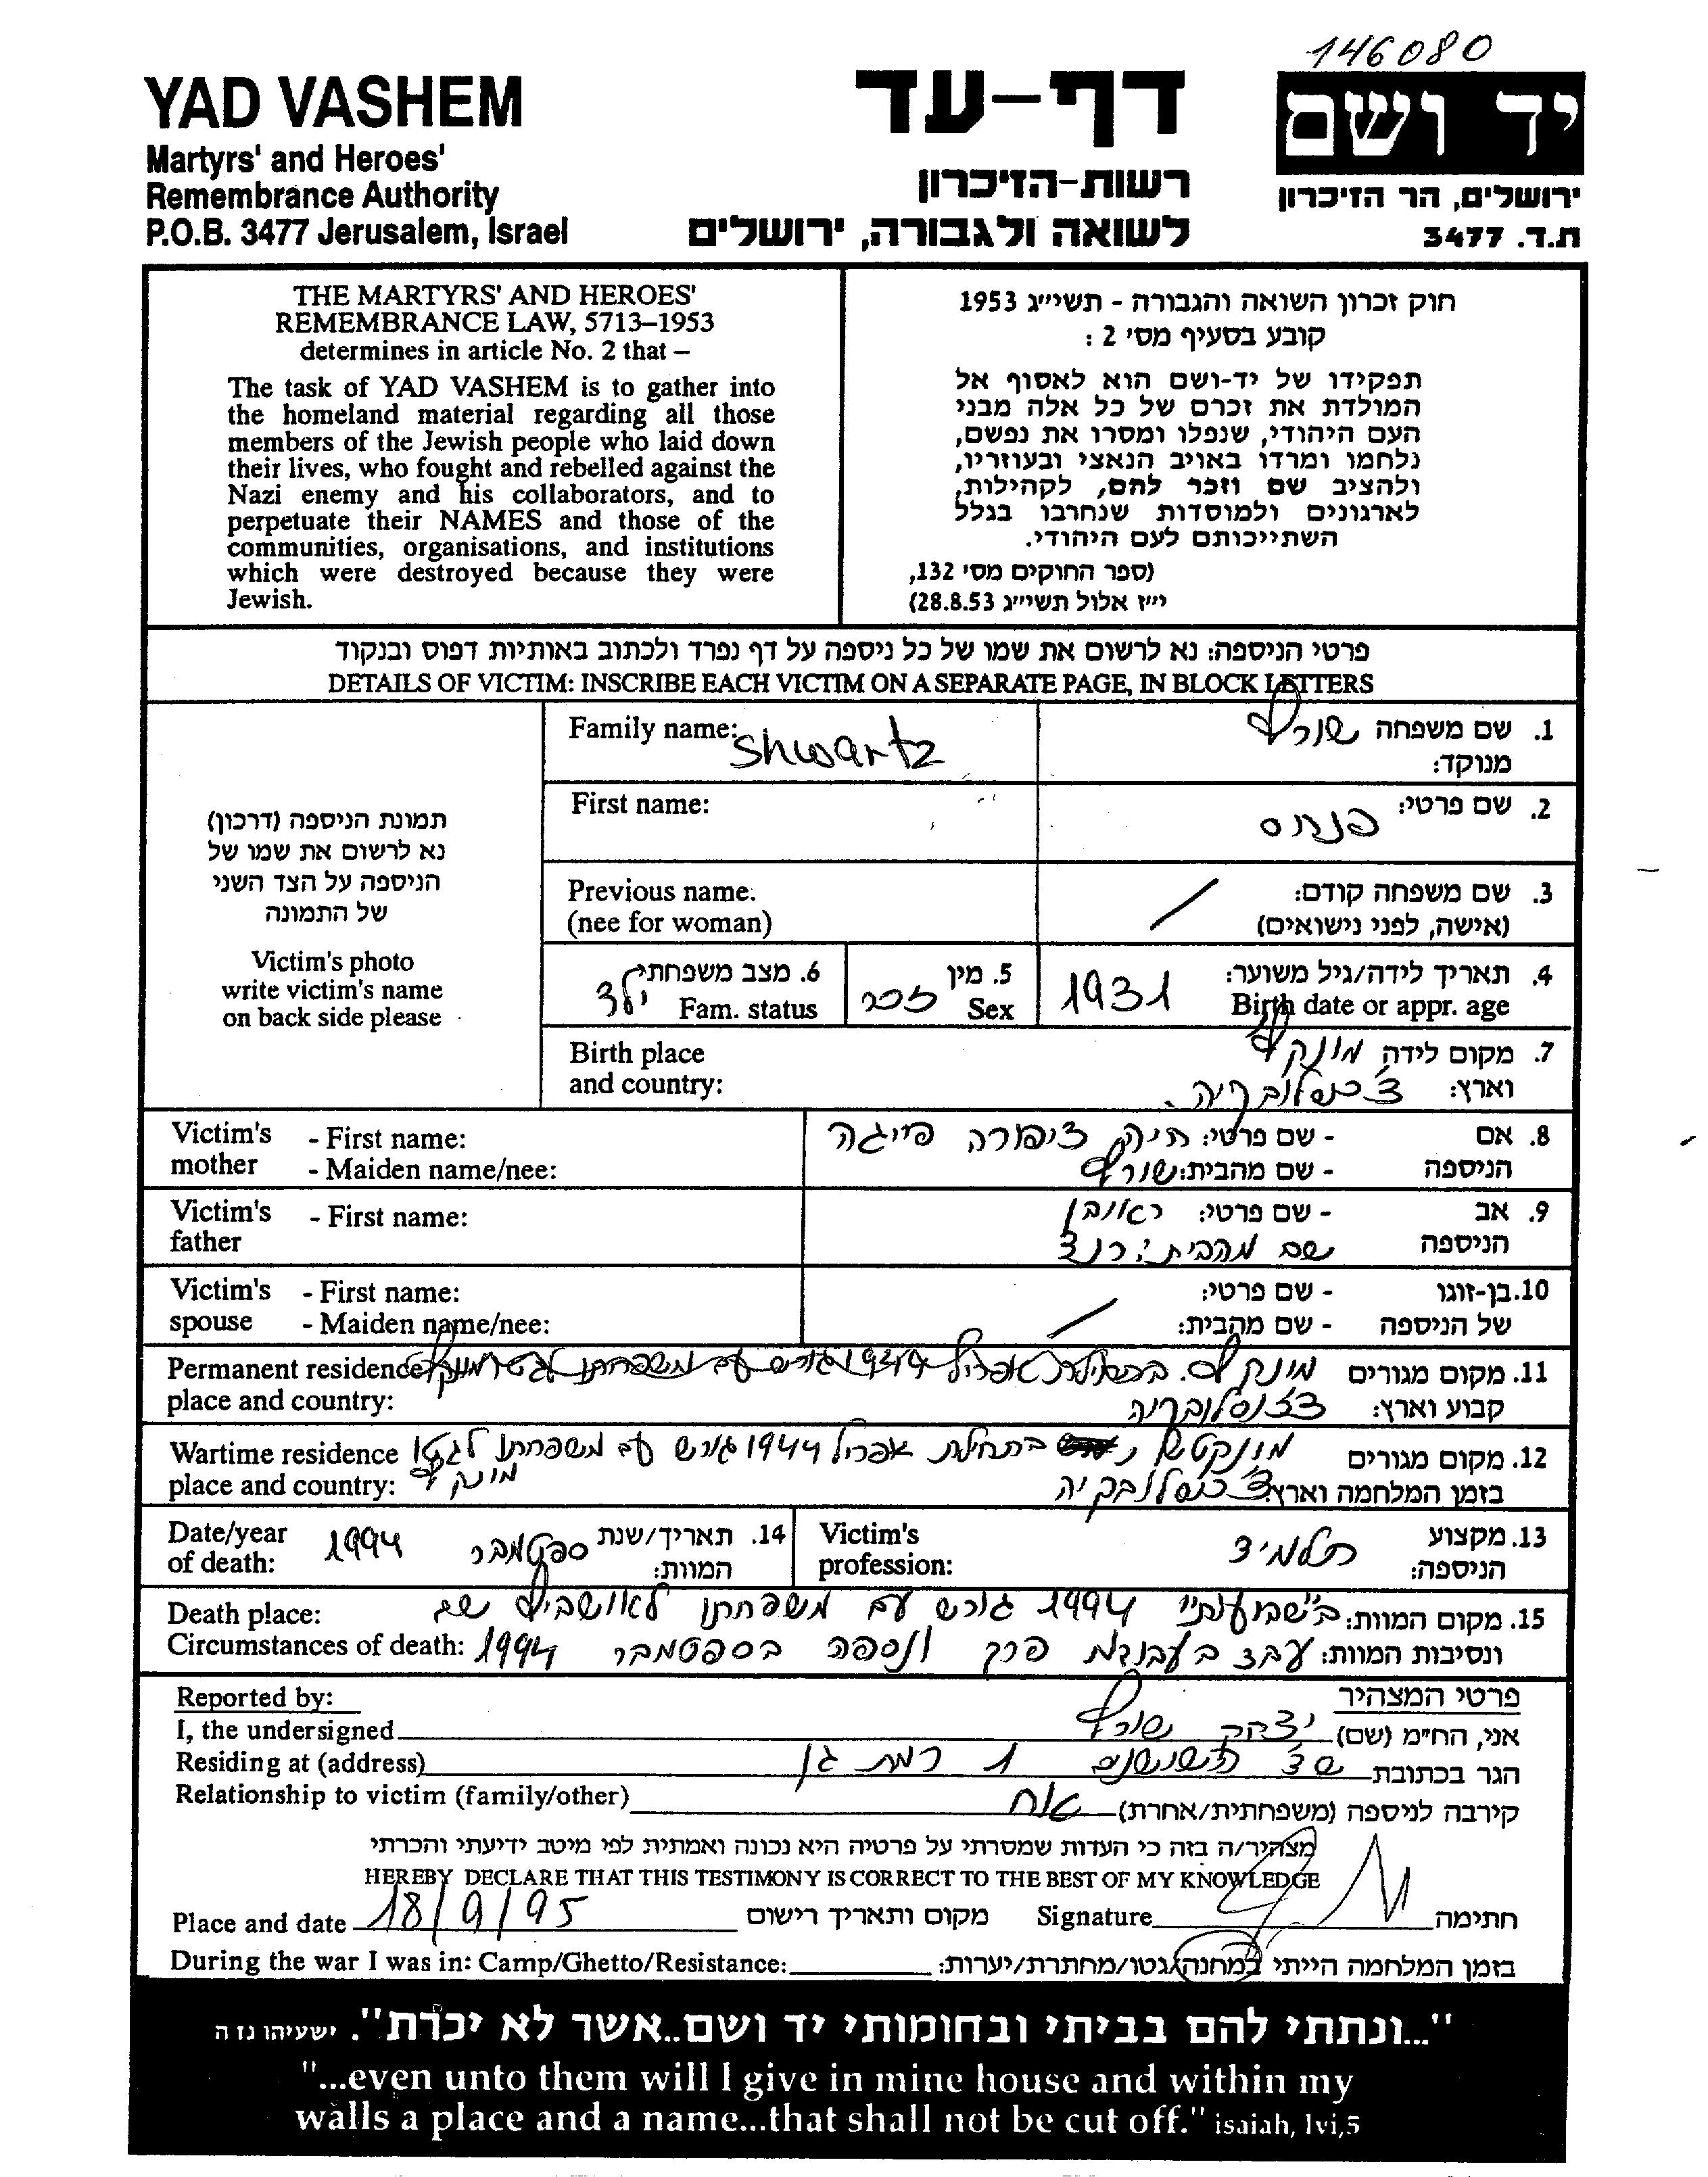 146080
YAD VASHEM
Martyrs' and Heroes'
Remembrance Authority
P.O.B. 3477 Jerusalem, Israel
דף-עד
רשות-הזיכרון
לשואה ולגבורה, ירושלים
יד ושם
ירושלים, הר הזיכרון
ת.ד. 3477
THE MARTYRS' AND HEROES'
REMEMBRANCE LAW, 5713–1953
determines in article No. 2 that –
The task of YAD VASHEM is to gather into
the homeland material regarding all those
members of the Jewish people who laid down
their lives, who fought and rebelled against the
Nazi enemy and his collaborators, and to
perpetuate their NAMES and those of the
communities, organisations, and institutions
which were destroyed because they were
Jewish.
חוק זכרון השואה והגבורה - תשי״ג 1953
קובע בסעיף מס׳ 2 :
תפקידו של יד-ושם הוא לאסוף אל
המולדת את זכרם של כל אלה מבני
העם היהודי, שנפלו ומסרו את נפשם,
נלחמו ומרדו באויב הנאצי ובעוזריו,
ולהציב שם וזכר להם, לקהילות,
לארגונים ולמוסדות שנחרבו בגלל
השתייכותם לעם היהודי.
(ספר החוקים מס׳ 132,
י״ז אלול תשי״ג 28.8.53)
פרטי הניספה: נא לרשום את שמו של כל ניספה על דף נפרד ולכתוב באותיות דפוס ובנקוד
DETAILS OF VICTIM: INSCRIBE EACH VICTIM ON A SEPARATE PAGE, IN BLOCK LETTERS
תמונת הניספה (דרכון)
נא לרשום את שמו של
הניספה על הצד השני
של התמונה
Victim's photo
write victim's name
on back side please
Family name: Shwartz
1. שם משפחה שורץ
מנוקד:
First name:
2. שם פרטי: פנחס
Previous name.
(nee for woman)
3. שם משפחה קודם: /
(אישה, לפני נישואים)
6. מצב משפחתי ילד
Fam. status
5. מין זכר
Sex
4. תאריך לידה/גיל משוער: 1931
Birth date or appr. age
Birth place
and country:
7. מקום לידה מונקץ
וארץ: צ'כוסלובקיה.
Victim's mother
- First name:
- Maiden name/nee:
8. אם הניספה
- שם פרטי: חיה ציפורה פייגה
- שם מהבית: שורץ
Victim's father
- First name:
9. אב הניספה
- שם פרטי: ראובן
שם מהבית:
Victim's spouse
- First name:
- Maiden name/nee:
10. בן-זוגו של הניספה
- שם פרטי:
- שם מהבית: /
Permanent residence
place and country:
11. מקום מגורים מונקץ. בתחילת אפריל גורש עם משפחתו לגטו מונקץ
קבוע וארץ: צ'כוסלובקיה
Wartime residence
place and country:
12. מקום מגורים בתחילת אפריל 1944 גורש עם משפחתו לגטו
מונקץ
בזמן המלחמה וארץ: צ'כוסלובקיה
Date/year
of death:
14. תאריך/שנת המוות: ספטמבר 1944
Victim's
profession:
13. מקצוע הניספה: תלמיד
Death place:
15. מקום המוות: 1944 גורש עם משפחתו לאושביץ שם
Circumstances of death:
ונסיבות המוות: עבד בעבודת פרך ונספה בספטמבר 1944
Reported by:
פרטי המצהיר
I, the undersigned
אני, הח״מ (שם) יצחק שורץ
Residing at (address)
הגר בכתובת 1 רמת גן
Relationship to victim (family/other)
קירבה לניספה (משפחתית/אחרת) אח
מצהיר/ה בזה כי העדות שמסרתי על פרטיה היא נכונה ואמתית לפי מיטב ידיעתי והכרתי
HEREBY DECLARE THAT THIS TESTIMONY IS CORRECT TO THE BEST OF MY KNOWLEDGE
Place and date 18/9/95 מקום ותאריך רישום
Signature חתימה
During the war I was in: Camp/Ghetto/Resistance:
בזמן המלחמה הייתי במחנה/גטו/מחתרת/יערות:
"...ונתתי להם בביתי ובחומותי יד ושם..אשר לא יכרת". ישעיהו נז ה
"...even unto them will I give in mine house and within my
walls a place and a name...that shall not be cut off." isaiah, lvi,5